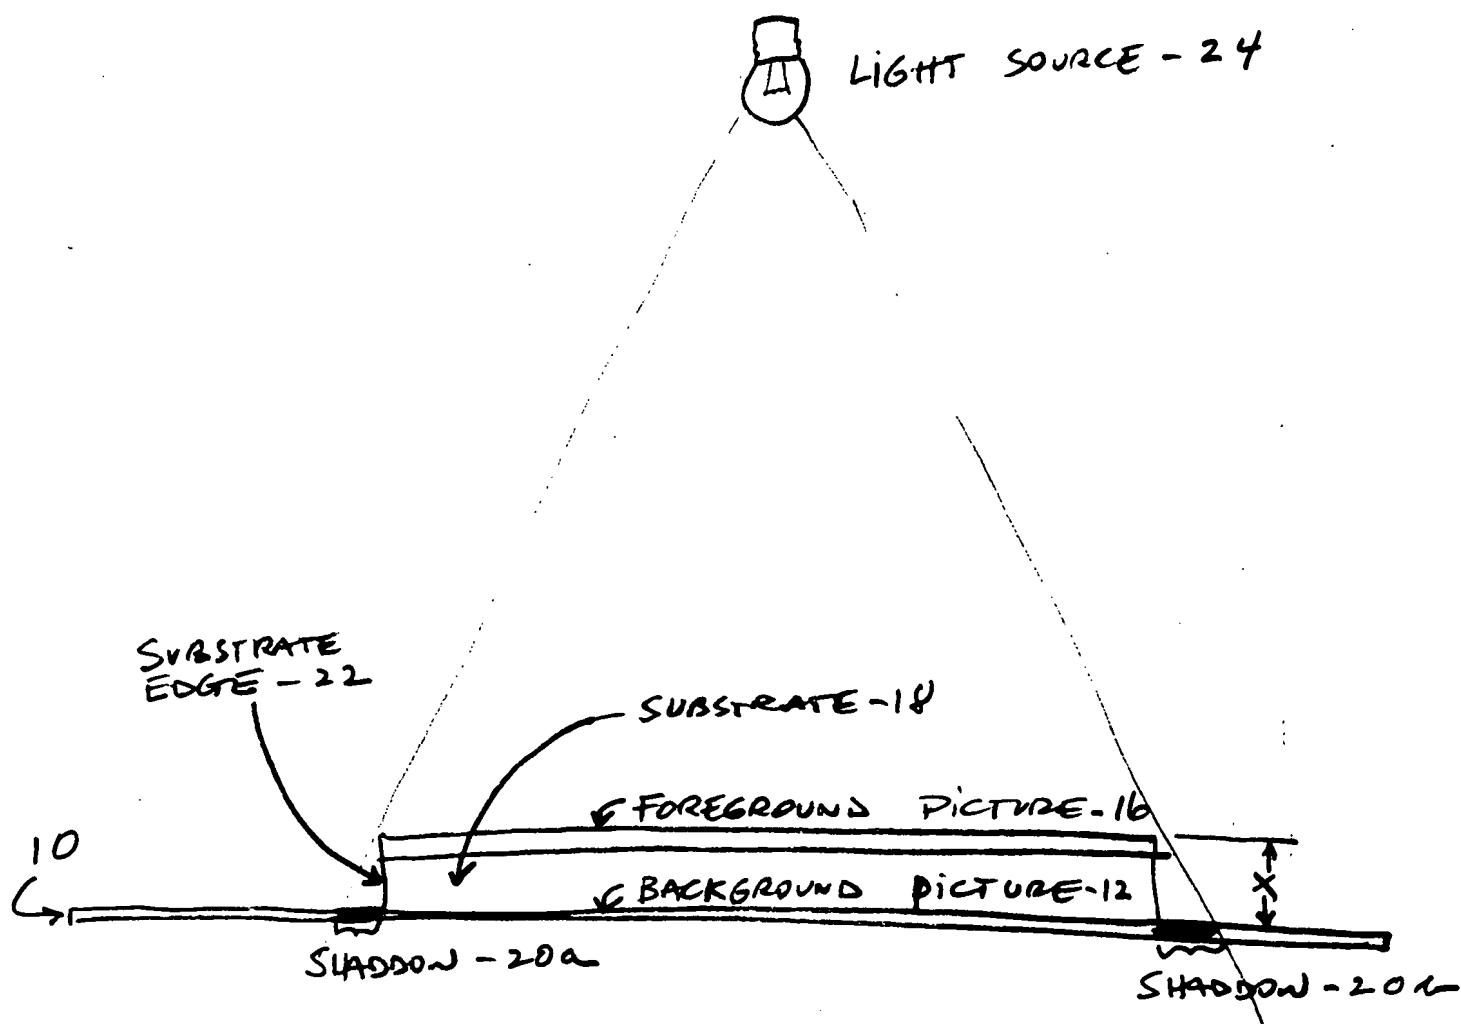 LIGHT SOURCE - 24
SUBSTRATE
EDGE - 22
SUBSTRATE - 18
FOREGROUND PICTURE - 16
10
X
BACKGROUND PICTURE - 12
SHADDOW - 20a
SHADDOW - 20